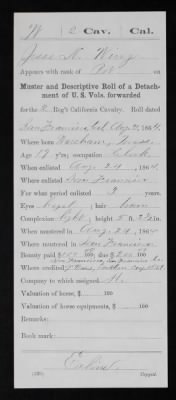 W 2 Cav. Cal.
Jesse N. Wing
Appears with rank of Pvt on
Muster and Descriptive Roll of a Detachment of U. S. Vols. forwarded
for the 2 Reg't California Cavalry. Roll dated
San Francisco Cal Aug 31, 1864.
Where born Wareham, Mass
Age 19 y'rs; occupation Clerk
When enlisted Aug 24, 1864
Where enlisted San Francisco
For what period enlisted years.
Eyes Hazel; hair
Complexion Light; height 5 ft. in.
When mustered in Aug 24, 1864
Where mustered in San Francisco
Bounty paid $ 100; due $ 100
Where credited
Company to which assigned
Valuation of horse, $ 100
Valuation of horse equipments, $ 100
Remarks:
Book mark:
Copyist.